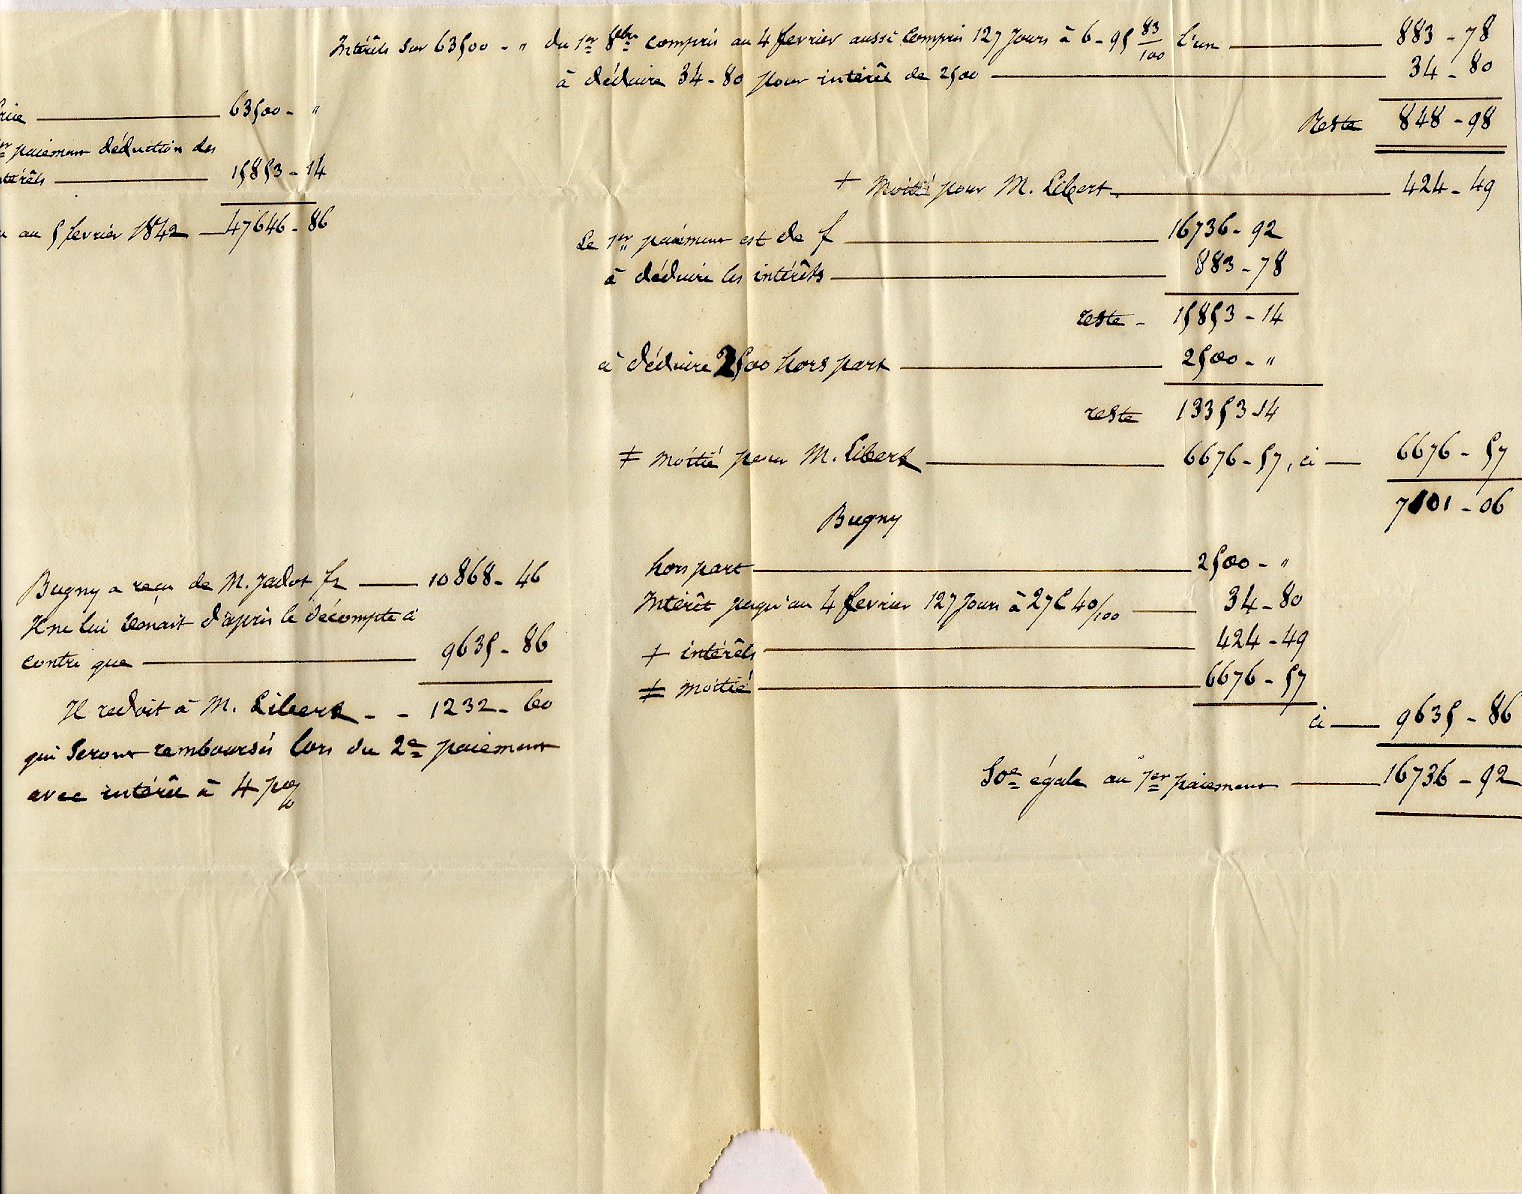 Intérêts sur 63500 - " du 1er 8bre compris au 4 fevrier aussi compris 127 jours à 6-95 83/100 l'un 883-78
à déduire 34-80 pour intérêt de 2500 34-80
Reste 848-98
+ Moitié pour M. Libert 424-49
63500- "
paiement déduction des
térêts 15853-14
au 5 fevrier 1842 47646-86
Le 1er paiement est de f 16736-92
à déduire les intérêts 883-78
reste - 15853-14
à déduire 2500 hors part 2500- "
reste 13353-14
≠ moitié pour M. Libert 6676-57, ci 6676-57
7101-06
Bugny
hors part 2500- "
Intérêt jusqu'au 4 fevrier 127 jours à 27c 40/100 34-80
+ intérêts 424-49
≠ moitié 6676-57
ci 9635-86
Soe égale au 1er paiement 16736-92
Bugny a reçu de M. Jadot fr 10868-46
Il ne lui venait d'après le décompte ci
contre que 9635-86
Il redoit à M. Libert - - 1232-60
qui seront remboursés lors du 2e paiement
avec intérêt à 4 p%